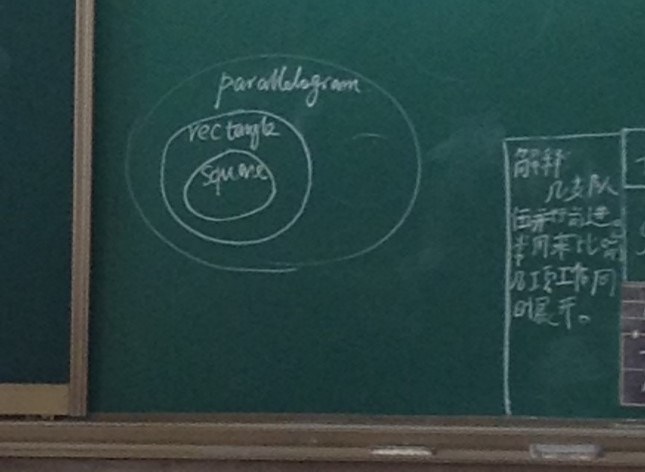 parallelogram
rectangle
square
解释
几支队
伍并行前进。
常用来比喻
几项工作同
时展开。